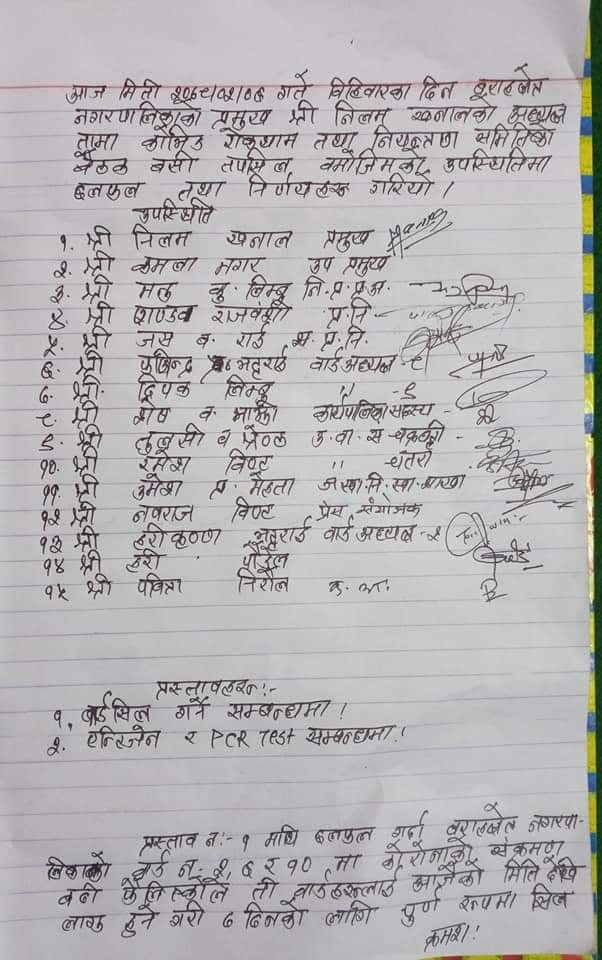 आज मिती २०७८/०२/०६ गते विहिवारका दिन
नगरपालिकाको प्रमुख श्री निलम खनालको अध्यक्ष
तामा कोभिड रोकथाम तथा नियन्त्रण समितिको
बैठक बसी तपसिल बमोजिमको उपस्थितिमा
छलफल तथा निर्णयहरू गरियो।
उपस्थिति
१. श्री निलम खनाल प्रमुख
२. श्री कमला मगर उप प्रमुख
३. श्री कु. लिम्बु नि. प्र. प्र. अ.
४. श्री राजवंशी प्र. नि.
५. श्री जस ब. राई स. प्र. नि.
६. श्री भट्टराई वार्ड अध्यक्ष - ८
७. श्री दिपक लिम्बु " - ९
८. श्री शेष ब. कार्यपालिका सदस्य -
९. श्री तुलसी
१०. श्री रमेश विष्ट "
११. श्री उमेश प्र. मेहता
१२ श्री नवराज विष्ट प्रेस संयोजक
१३ श्री हरी कृष्ण भट्टराई वार्ड अध्यक्ष - २
१४ श्री हरी पौडेल
१५ श्री पवित्रा निरौला क. अ.
प्रस्तावहरू:-
१. वार्ड सिल गर्ने सम्बन्धमा!
२. एन्टिजेन र PCR Test सम्बन्धमा!
प्रस्ताव नं:- १ माथि छलफल गर्दा नगरपा-
लिकाको वार्ड नं. २, ६ र १० मा कोरोनाको संक्रमण
बढी फैलिएकोले ती वार्डहरूलाई आजैको मिति देखि
लागु हुने गरी ७ दिनको लागि पुर्ण रूपमा सिल
क्रमश!